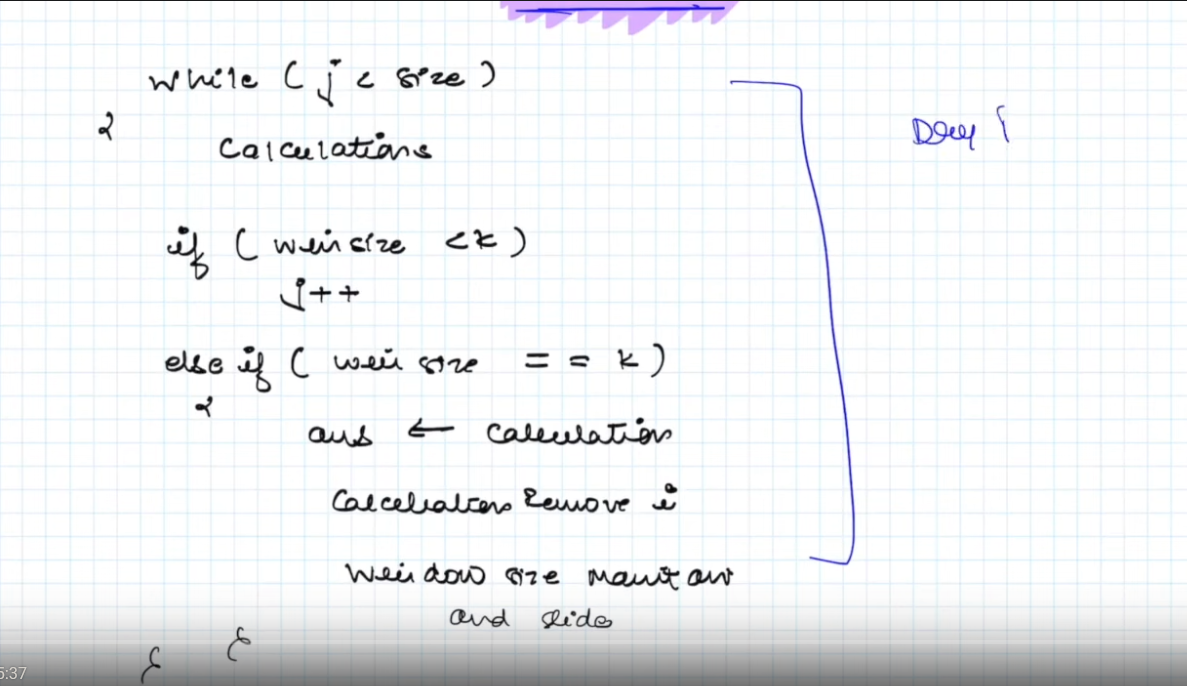 while ( j < size )
{
Calculations
if ( win size < k )
j++
else if ( win size == k )
{
ans ← calculation
Calculation Remove i
Window size maintain
and slide
}
}
5:37